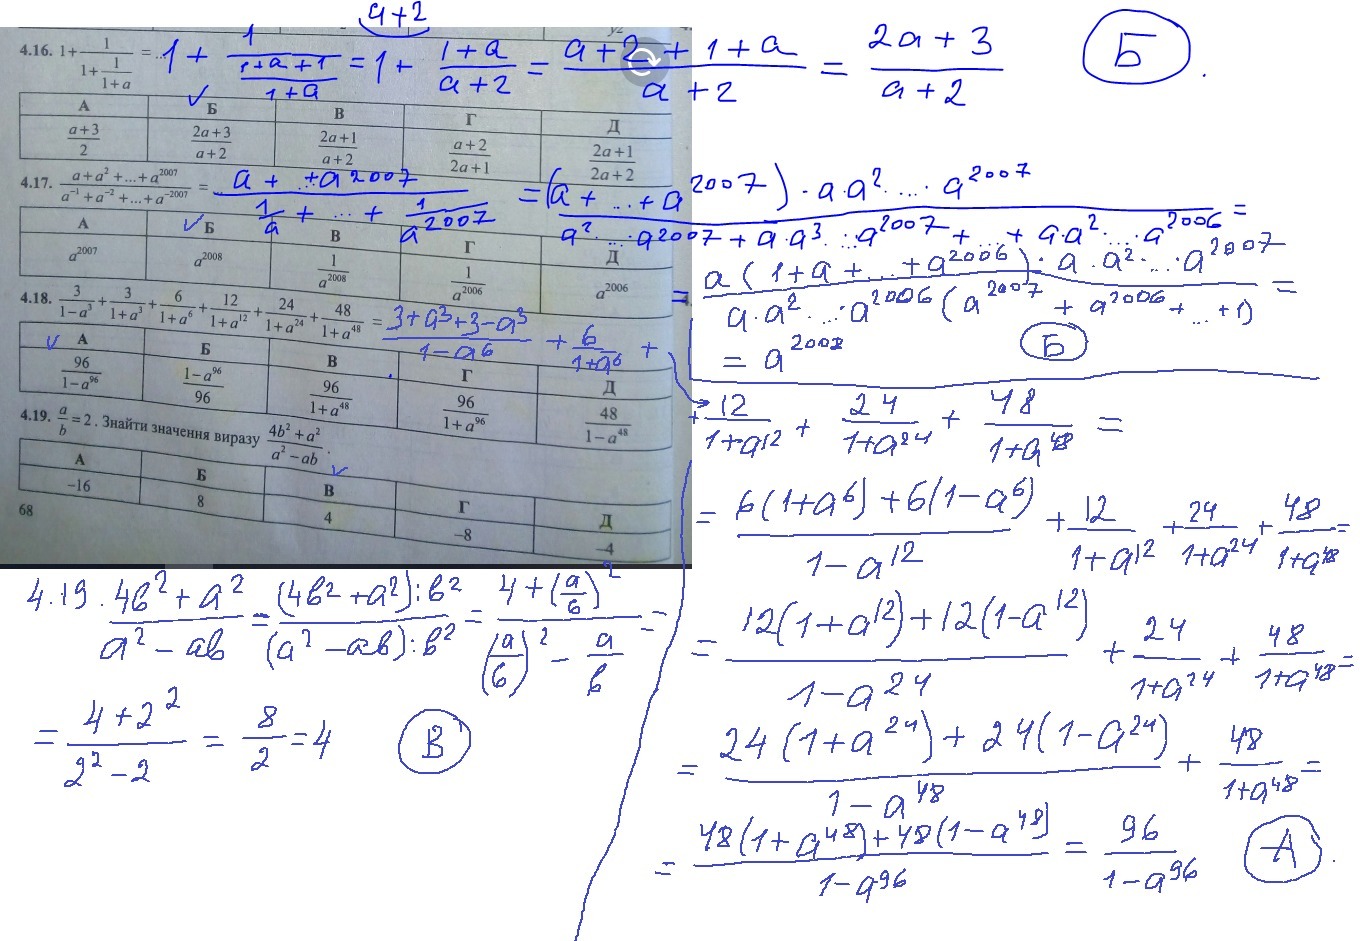 a+2
4.16. 1+1/(1+1/(1+a)) = ... 1 + 1/((1+a+1)/(1+a)) = 1 + (1+a)/(a+2) = (a+2+1+a)/(a+2) = (2a+3)/(a+2) Б.
А Б В Г Д
(a+3)/2 (2a+3)/(a+2) (2a+1)/(a+2) (a+2)/(2a+1) (2a+1)/(2a+2)
4.17. (a+a²+...+a²⁰⁰⁷)/(a⁻¹+a⁻²+...+a⁻²⁰⁰⁷) = (a+...+a²⁰⁰⁷)/(1/a+...+1/a²⁰⁰⁷) = (a+...+a²⁰⁰⁷)·a·a²·...·a²⁰⁰⁷/(a²·...·a²⁰⁰⁷+a·a³·...·a²⁰⁰⁷+...+a·a²·...·a²⁰⁰⁶) =
= a(1+a+...+a²⁰⁰⁶)·a·a²·...·a²⁰⁰⁷/(a·a²·...·a²⁰⁰⁶(a²⁰⁰⁷+a²⁰⁰⁶+...+1)) =
= a²⁰⁰⁸ Б
А Б В Г Д
a²⁰⁰⁷ a²⁰⁰⁸ 1/a²⁰⁰⁸ 1/a²⁰⁰⁶ a²⁰⁰⁶
4.18. 3/(1−a³)+3/(1+a³)+6/(1+a⁶)+12/(1+a¹²)+24/(1+a²⁴)+48/(1+a⁴⁸) = (3+a³+3−a³)/(1−a⁶) + 6/(1+a⁶) +
+ 12/(1+a¹²) + 24/(1+a²⁴) + 48/(1+a⁴⁸) =
= (6(1+a⁶)+6(1−a⁶))/(1−a¹²) + 12/(1+a¹²) + 24/(1+a²⁴) + 48/(1+a⁴⁸) =
= (12(1+a¹²)+12(1−a¹²))/(1−a²⁴) + 24/(1+a²⁴) + 48/(1+a⁴⁸) =
= (24(1+a²⁴)+24(1−a²⁴))/(1−a⁴⁸) + 48/(1+a⁴⁸) =
= (48(1+a⁴⁸)+48(1−a⁴⁸))/(1−a⁹⁶) = 96/(1−a⁹⁶) А.
А Б В Г Д
96/(1−a⁹⁶) (1−a⁹⁶)/96 96/(1+a⁴⁸) 96/(1+a⁹⁶) 48/(1−a⁴⁸)
4.19. a/b=2. Знайти значення виразу (4b²+a²)/(a²−ab).
А Б В Г Д
−16 8 4 −8 −4
68
4.19. (4b²+a²)/(a²−ab) = ((4b²+a²):b²)/((a²−ab):b²) = (4+(a/b)²)/((a/b)²−a/b) =
= (4+2²)/(2²−2) = 8/2 = 4 В